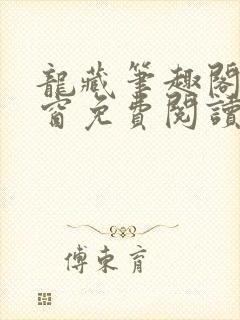 龍藏筆趣閣
窗免費閱讀
傅東育